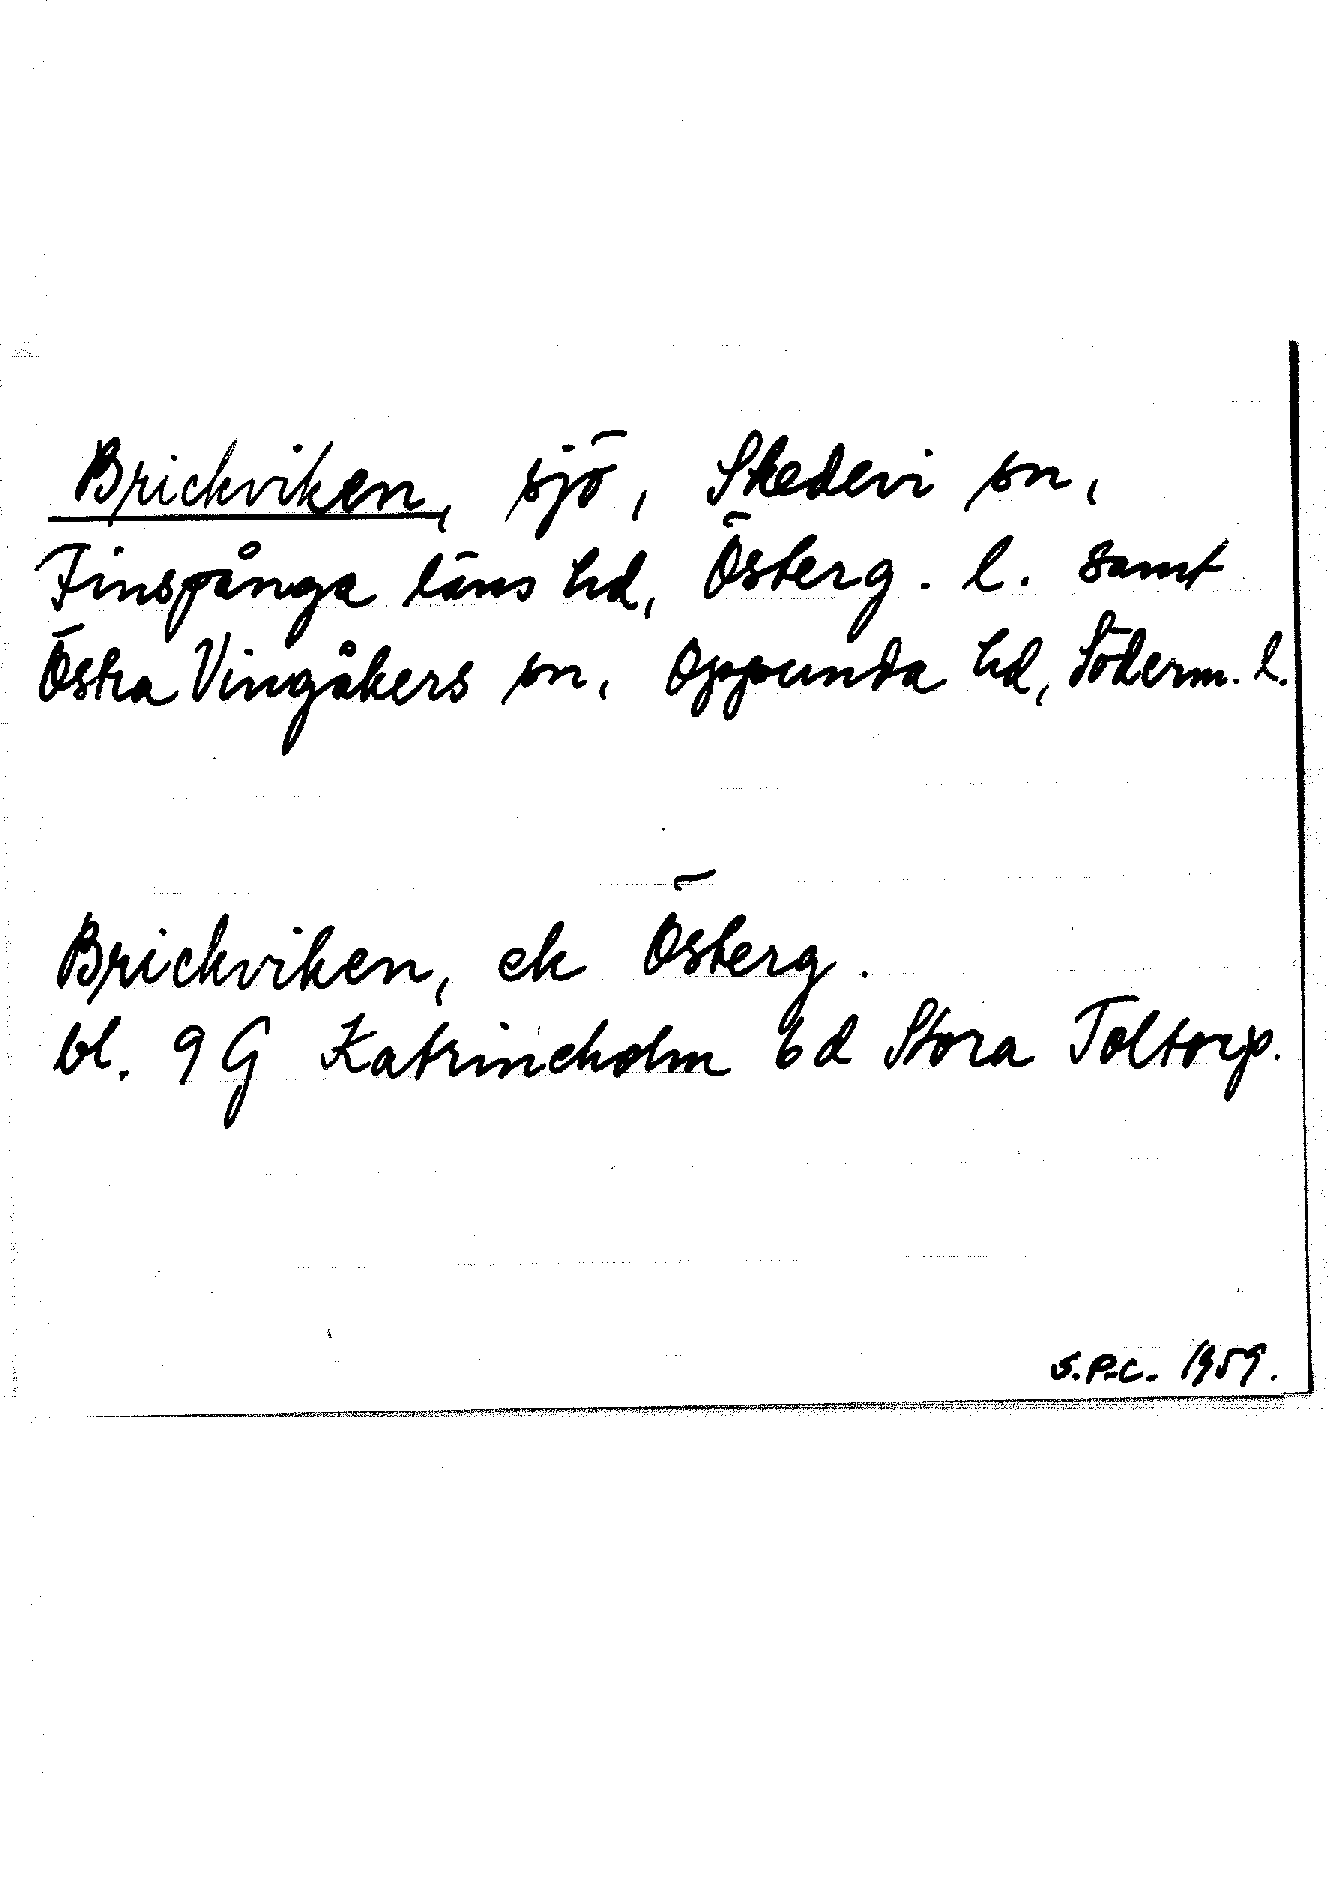 Brickviken, sjö, Skedevi sn,
Finspånga läns hd, Österg. l. samt
Östra Vingåkers sn, Oppunda hd, Söderm. l.
Brickviken, ek Österg.
bl. 9 G Katrineholm 6 d Stora Toltorp.
S.P.C. 1959.